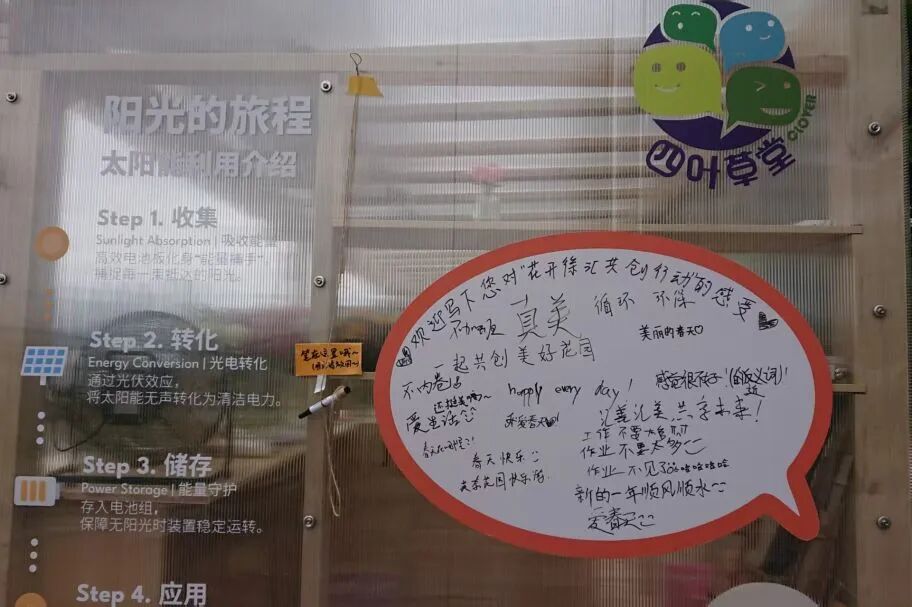 阳光的旅程
太阳能利用介绍
Step 1. 收集
Sunlight Absorption | 吸收能量
高效电池板化身“能量捕手”，
捕捉每一束抵达的阳光。
Step 2. 转化
Energy Conversion | 光电转化
通过光伏效应，
将太阳能无声转化为清洁电力。
Step 3. 储存
Power Storage | 能量守护
存入电池组，
保障无阳光时装置稳定运转。
Step 4. 应用
CLOVER
四叶草堂
笔在这里哦～
欢迎写下您对“花开徐汇共创行动”的感受
不加班
真美
循环 环保
美丽的春天
一起共创美好花园
不内卷
happy every day!
爱生活
春天快乐
汇善汇美 共享未来！
工作不要太多
作业不要太多
作业不见了哈哈哈哈
新的一年顺风顺水
爱春天